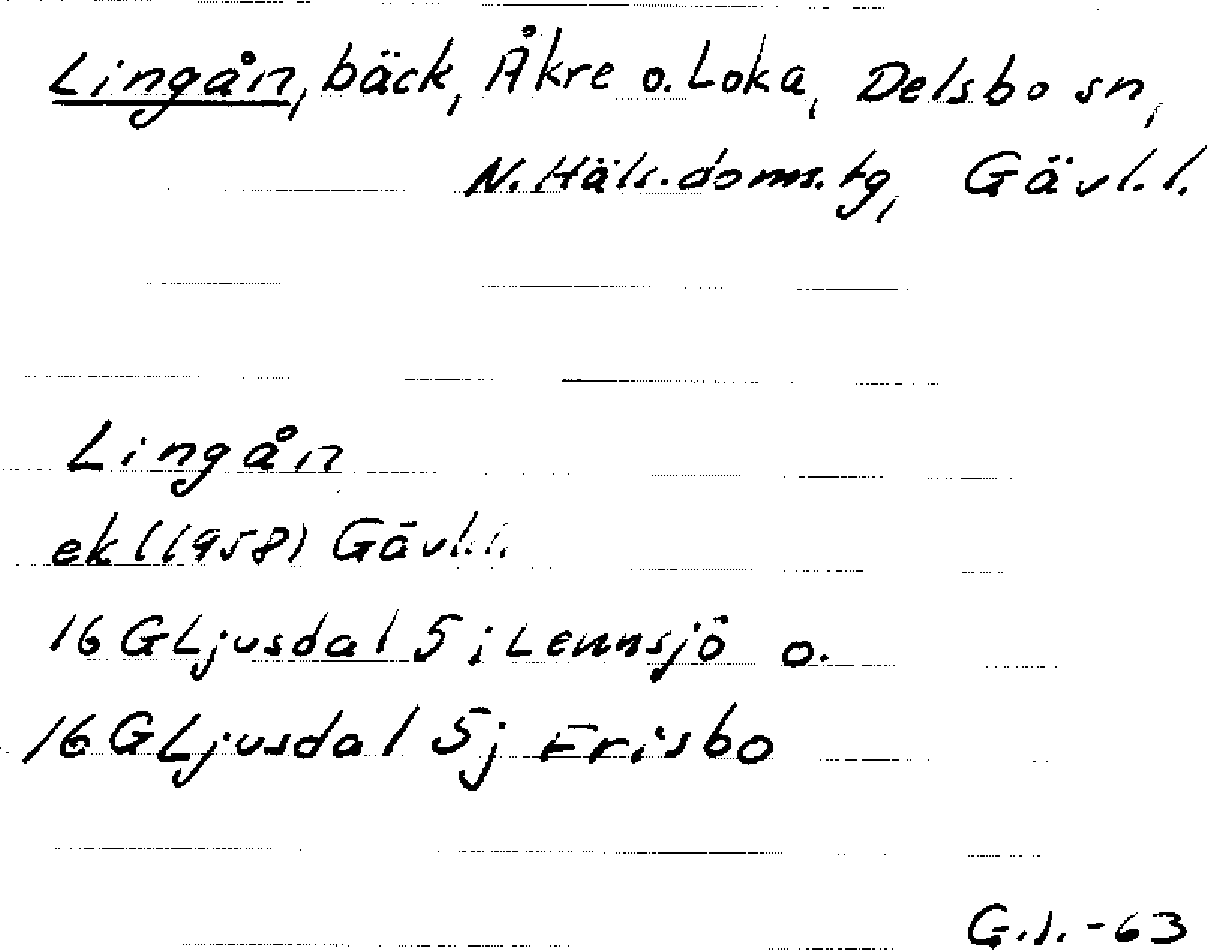 Lingån, bäck, Åkre o. Loka, Delsbo sn,
N. Häls. doms. tg, Gävl. l.
Lingån
ek (1958) Gävl. l.
16 G Ljusdal 5 i Lennsjö o.
16 G Ljusdal 5j Frisbo
G.I. -63